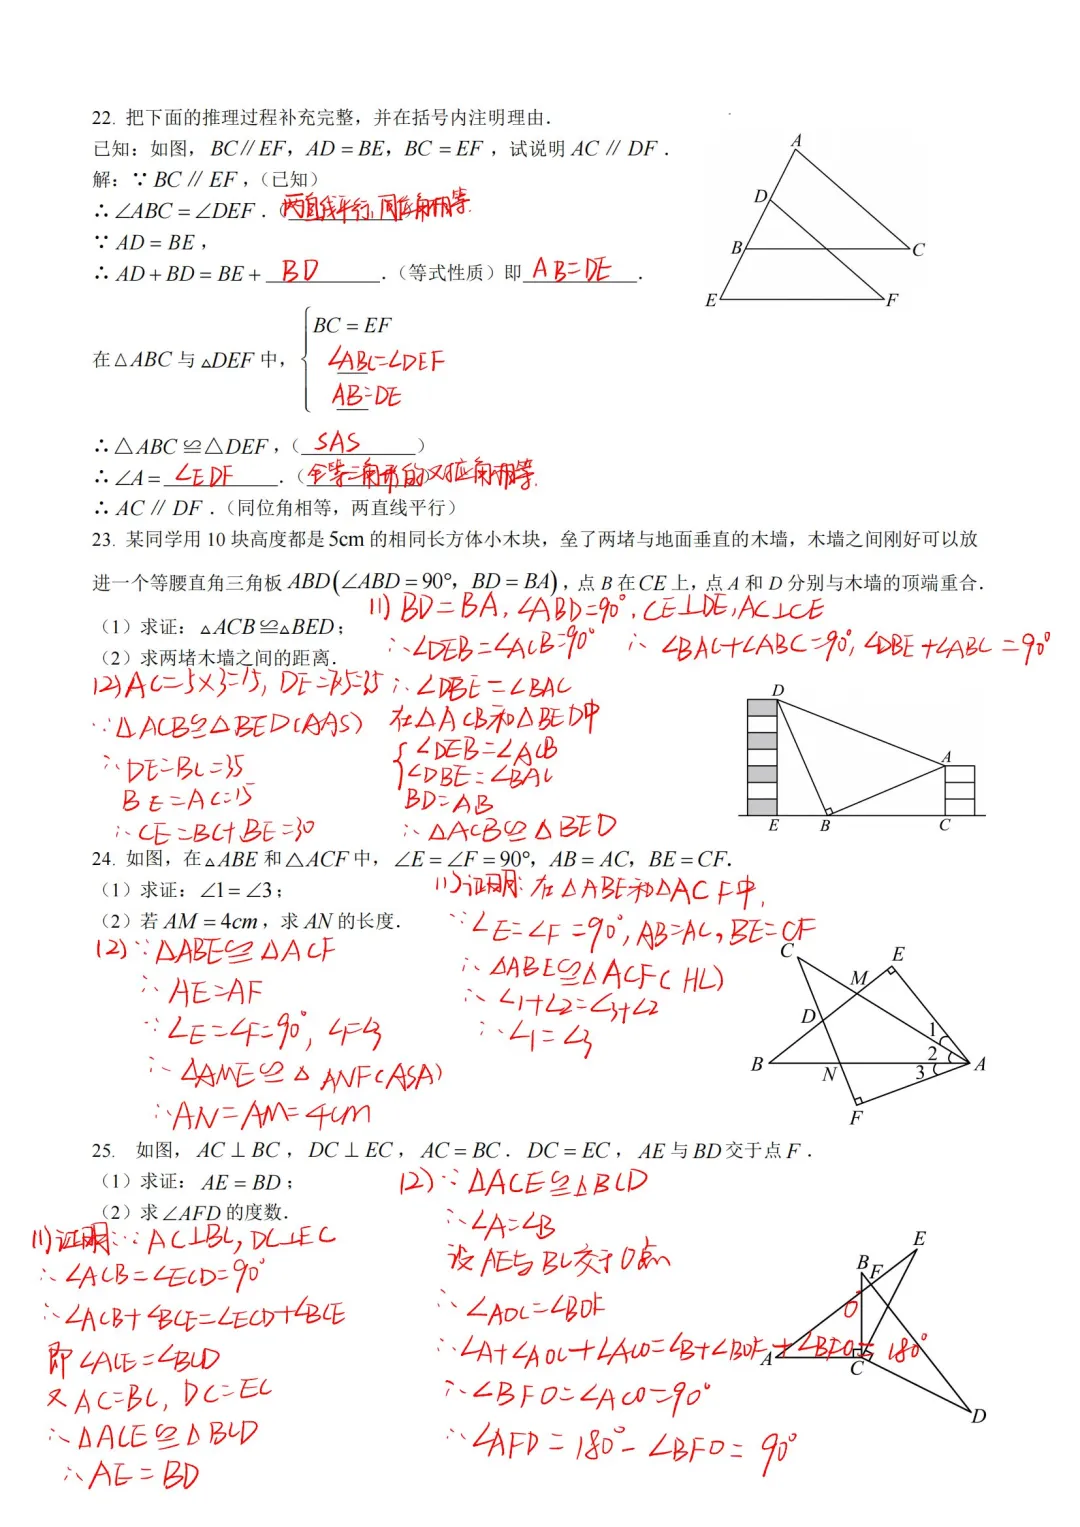 22. 把下面的推理过程补充完整，并在括号内注明理由.
已知：如图，BC∥EF，AD＝BE，BC＝EF，试说明 AC∥DF.
解：∵BC∥EF，（已知）
∴∠ABC＝∠DEF.（两直线平行，同位角相等.
∵AD＝BE，
∴AD＋BD＝BE＋ BD .（等式性质）即 AB=DE .
BC＝EF
在△ABC 与△DEF 中，
∠ABC=∠DEF
AB=DE
∴△ABC≌△DEF，（ SAS ）
∴∠A＝ ∠EDF .（全等三角形的对应角相等.）
∴AC∥DF.（同位角相等，两直线平行）
A
D
B
C
E
F
23. 某同学用 10 块高度都是 5cm 的相同长方体小木块，垒了两堵与地面垂直的木墙，木墙之间刚好可以放
进一个等腰直角三角板 ABD(∠ABD＝90°，BD＝BA)，点 B 在 CE 上，点 A 和 D 分别与木墙的顶端重合.
（1）求证：△ACB≌△BED；
（2）求两堵木墙之间的距离.
(1) BD=BA，∠ABD=90°，CE⊥DE，AC⊥CE
∴∠DEB=∠ACB=90° ∴∠BAC+∠ABC=90°，∠DBE+∠ABC=90°
∴∠DBE=∠BAC
在△ACB和△BED中
∠DEB=∠ACB
∠DBE=∠BAC
BD=AB
∴△ACB≌△BED
(2) AC=5×3=15，DE=7×5=35
∵△ACB≌△BED(AAS)
∴DE=BC=35
BE=AC=15
∴CE=BC+BE=30
D
A
E
B
C
24. 如图，在△ABE 和△ACF 中，∠E＝∠F＝90°，AB＝AC，BE＝CF.
（1）求证：∠1＝∠3；
（2）若 AM＝4cm，求 AN 的长度.
(1)证明：在△ABE和△ACF中，
∵∠E=∠F=90°，AB=AC，BE=CF
∴△ABE≌△ACF(HL)
∴∠1+∠2=∠3+∠2
∴∠1=∠3
(2)∵△ABE≌△ACF
∴AE=AF
∵∠E=∠F=90°，∠1=∠3
∴△AME≌△ANF(ASA)
∴AN=AM=4cm
C
E
M
D
1
2
3
B
N
A
F
25. 如图，AC⊥BC，DC⊥EC，AC＝BC．DC＝EC，AE 与 BD 交于点 F．
（1）求证：AE＝BD；
（2）求∠AFD 的度数.
(1)证明：∵AC⊥BC，DC⊥EC
∴∠ACB=∠ECD=90°
∴∠ACB+∠BCE=∠ECD+∠BCE
即∠ACE=∠BCD
又AC=BC，DC=EC
∴△ACE≌△BCD
∴AE=BD
(2)∵△ACE≌△BCD
∴∠A=∠B
设AE与BC交于O点
∴∠AOC=∠BOF
∴∠A+∠AOC+∠ACO=∠B+∠BOF+∠BFO=180°
∴∠BFO=∠ACO=90°
∴∠AFD=180°-∠BFO=90°
E
B
F
O
A
C
D